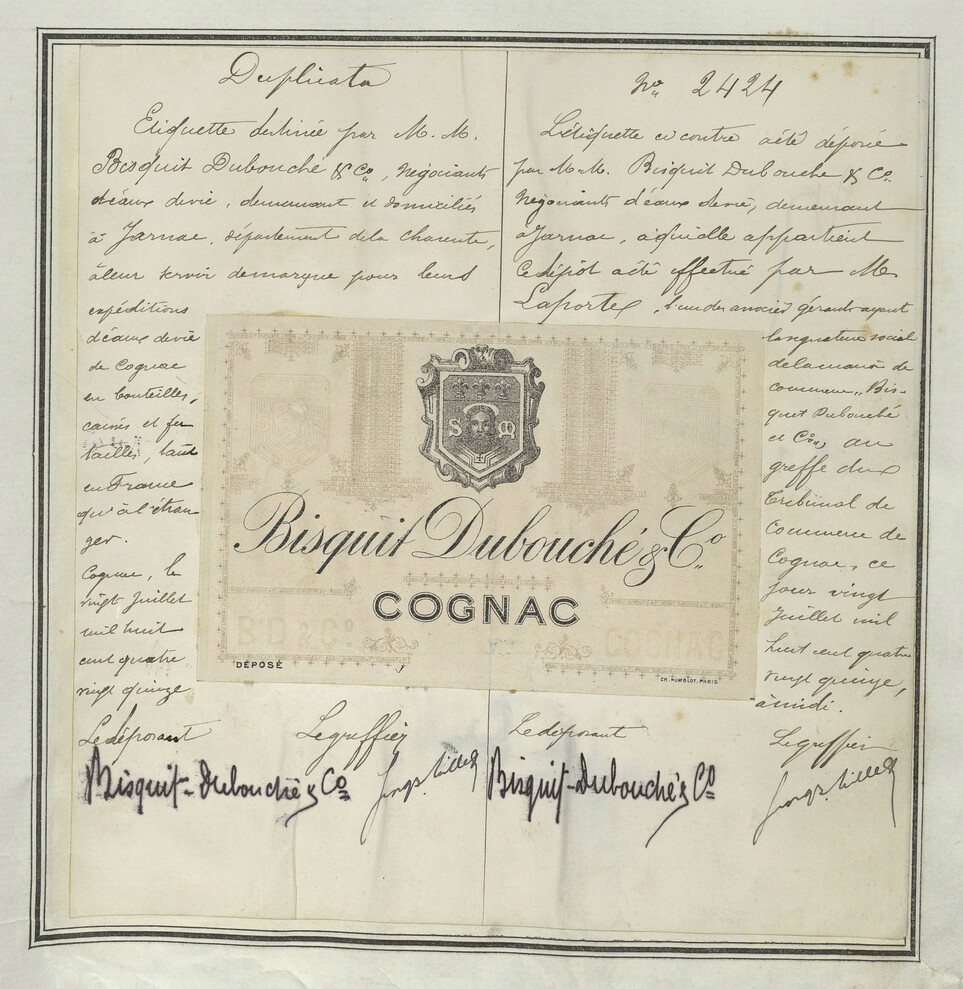 Duplicata
Etiquette destinée par M. M.
Bisquit Dubouché & Co, négociants
d'eaux de vie, demeurant et domiciliés
à Jarnac, département de la Charente,
à leur servir de marque pour leurs
expéditions
d'eaux de vie
de Cognac
en bouteilles,
caisses et fu
tailles, tant
en France
qu'à l'étran
ger.
Cognac, le
vingt Juillet
mil huit
cent quatre
vingt quinze
Le déposant
Le greffier
Bisquit-Dubouché & Co
No 2424
L'étiquette ci contre a été déposée
par M. M. Bisquit Dubouché & Co.
négociants d'eaux de vie, demeurant
à Jarnac, à qui elle appartient
Ce dépôt a été effectué par M.
Laporte, l'un des associés gérants ayant
la signature social
de la maison de
commerce "Bis-
quit Dubouché
et Co", au
greffe du
Tribunal de
Commerce de
Cognac, ce
jour vingt
Juillet mil
huit cent quatre
vingt quinze,
à midi.
Le déposant
Le greffier
Bisquit-Dubouché & Co
S M
Bisquit Dubouché & Co
COGNAC
B.D & Co
COGNAC
DÉPOSÉ
CH. HUMBLOT, PARIS